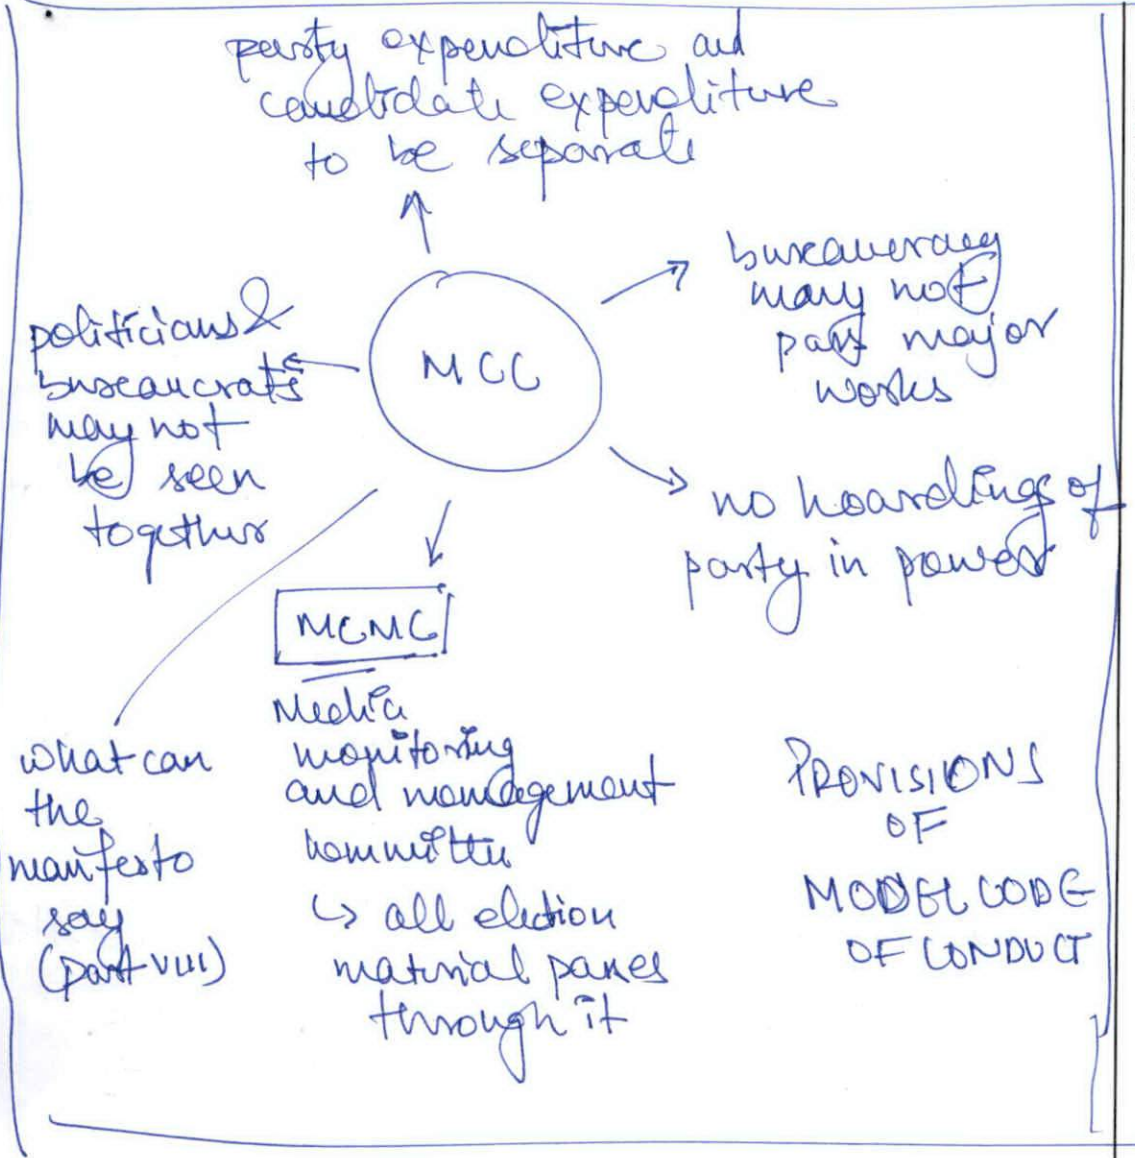 party expenditure and
candidate expenditure
to be separate
bureaucracy
may not
pass major
works
politicians &
bureaucrats
may not
be seen
together
MCC
no hoardings of
party in power
MCMC
Media
monitoring
and management
committee
↳ all election
material passes
through it
what can
the
manifesto
say
(part VIII)
PROVISIONS
OF
MODEL CODE
OF CONDUCT